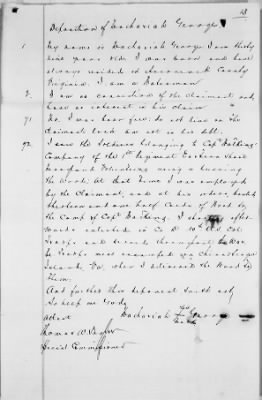 Deposition of Zachariah George
1. My name is Zachariah George I am thirty
nine years old. I was born and have
always resided in Accomack County
Virginia. I am a
2. I am no connection of the Claimant and
have no interest in his claim
71. No. I was born free. do not live on the
Claimants land am not in his debt.
72. I saw the Soldiers belonging to Capt
Company of the 1st Regiment Eastern Shore
Maryland Volunteers using & burning
the Wood. At that time I was employed
by the Claimant, and at his order, hauled
and one half Cords of Wood to
the Camp of Capt I after-
wards enlisted in Co 10th U.S. Col.
Troops and served throughout the War.
The Troops were encamped on Chincoteague
Island Va. when I delivered the Wood to
them.
And further this deponent saith not.
So help me God.
Attest Zachariah his George
mark
Thomas W.
Special Commissioner